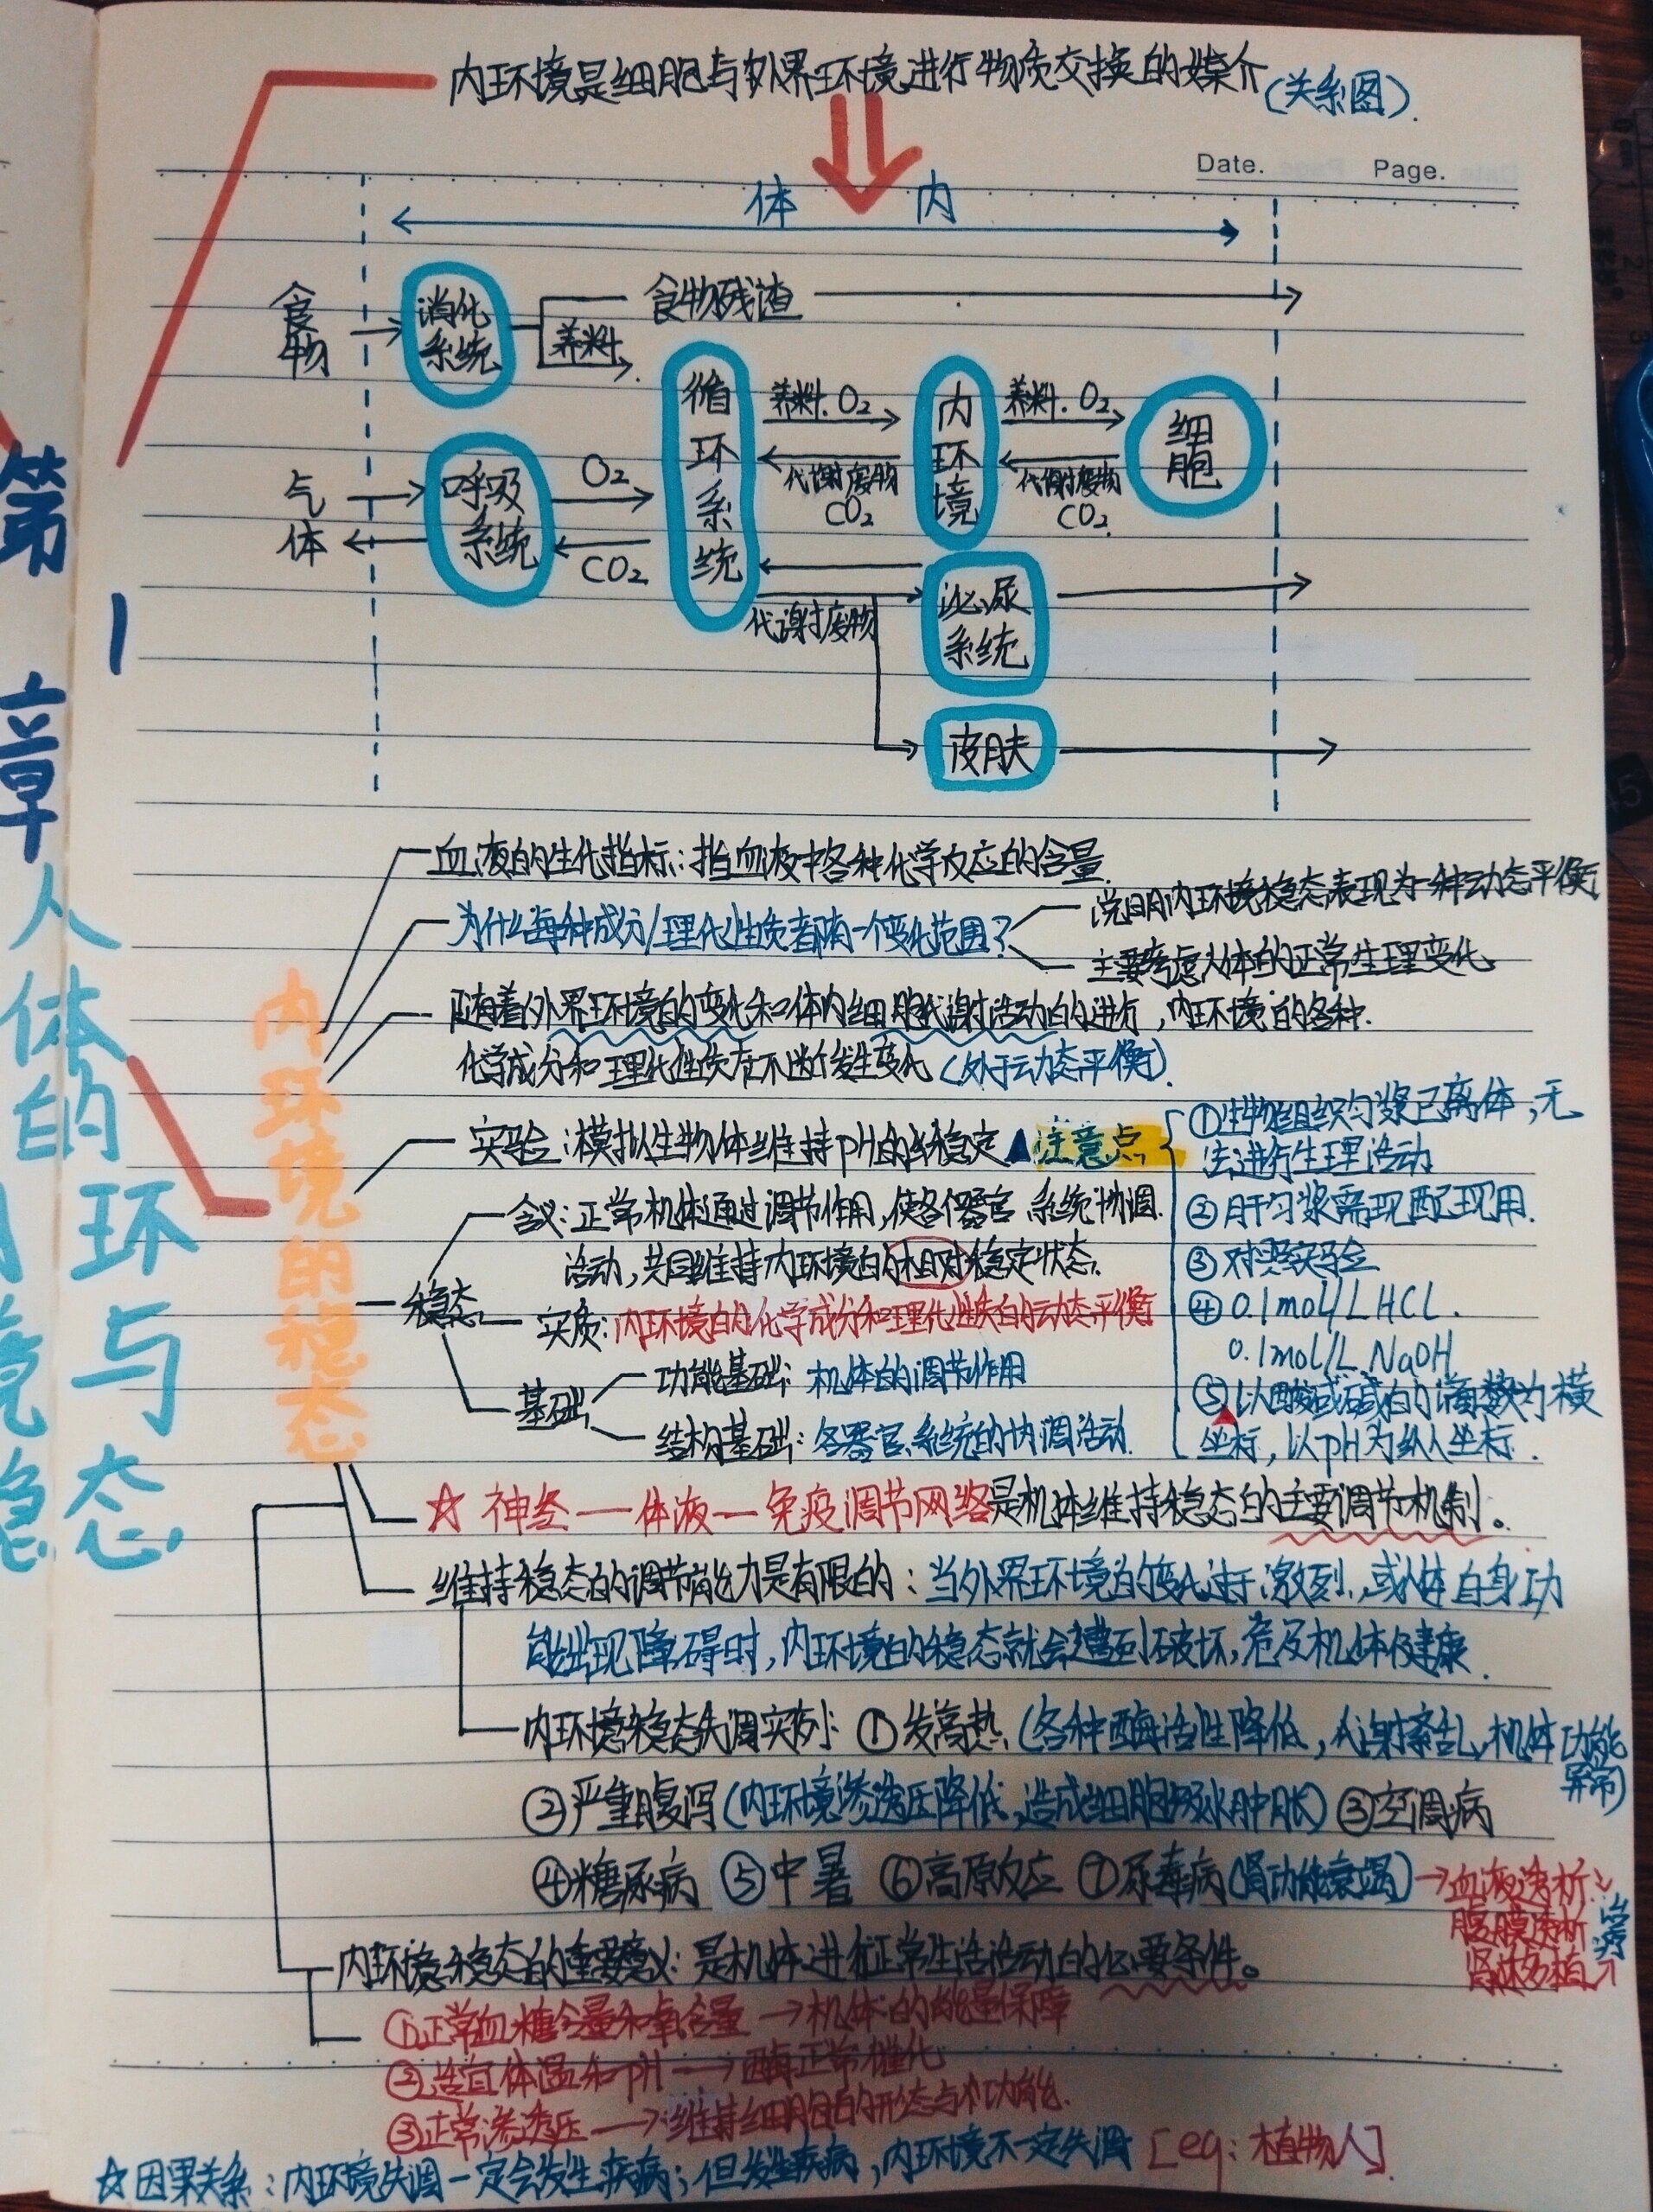 内环境是细胞与外界环境进行物质交换的媒介(关系图).
Date. Page.
体 内
食物
消化系统
食物残渣
养料
气体
呼吸系统
O₂
CO₂
循环系统
养料.O₂
代谢废物
CO₂
内环境
养料.O₂
代谢废物
CO₂
细胞
代谢废物
泌尿系统
皮肤
第1章 人体的内环境与稳态
内环境的稳态
血液的生化指标:指血液中各种化学反应的含量.
为什么每种成分/理化性质都有一个变化范围?
说明内环境稳态表现为一种动态平衡
主要考虑人体的正常生理变化
随着外界环境的变化和体内细胞代谢活动的进行,内环境的各种
化学成分和理化性质在不断发生变化(处于动态平衡).
实验:模拟生物体维持pH的稳定▲注意点
①生物组织匀浆已离体,无
法进行生理活动
②用匀浆需现配现用.
③对照实验
④0.1mol/L HCl.
0.1mol/L NaOH
⑤以酸或碱的滴数为横
坐标,以pH为纵坐标.
稳态
含义:正常机体通过调节作用,使各个器官.系统协调
活动,共同维持内环境的相对稳定状态.
实质:内环境的化学成分和理化性质的动态平衡
基础
功能基础:机体的调节作用
结构基础:各器官、系统的协调活动.
☆神经—体液—免疫调节网络是机体维持稳态的主要调节机制。
维持稳态的调节能力是有限的:当外界环境的变化过于激烈,或人体自身功
能出现障碍时,内环境的稳态就会遭到破坏,危及机体健康.
内环境稳态失调实例:①发高热(各种酶活性降低,代谢紊乱,机体功能
异常)
②严重腹泻(内环境渗透压降低,造成细胞吸水肿胀)③空调病
④糖尿病 ⑤中暑 ⑥高原反应 ⑦尿毒病(肾功能衰竭)→血液透析
腹膜透析
肾脏移植
治疗
内环境稳态的重要意义:是机体进行正常生活活动的必要条件。
①正常血糖含量和氧含量→机体的能量保障
②适宜体温和pH→酶正常催化
③正常渗透压→维持细胞的形态与功能.
☆因果关系:内环境失调一定会发生疾病;但发生疾病,内环境不一定失调 [eg:植物人]